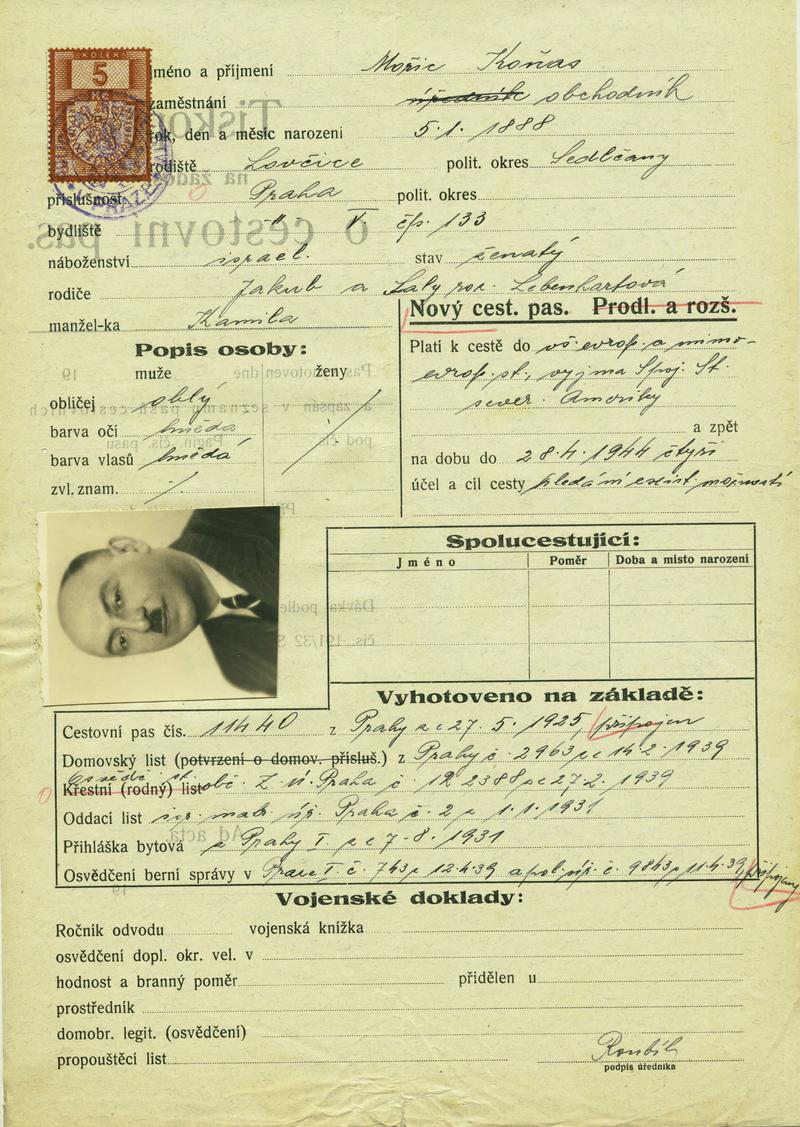 KOLEK
5
Jméno a příjmení Mořic Koňas
zaměstnání úředník obchodník
rok, den a měsíc narození 5. 1. 1888
rodiště Lovčice polit. okres Sedlčany
příslušnost Praha polit. okres
bydliště -"- V čp. 133
náboženství israel. stav ženatý
rodiče Jakub a Saly roz. Lebenhartová
manžel-ka Kamila
Nový cest. pas. Prodl. a rozš.
Popis osoby:
muže ženy
obličej oblý
barva očí hnědá
barva vlasů hnědá
zvl. znam. /.
Platí k cestě do vš. evrop. a mimo-
evrop. st., vyjma Spoj. St.
sever. Ameriky
a zpět
na dobu do 28. 4. 1944 čtyři
účel a cíl cesty hledání exist. možností
Spolucestující:
Jméno Poměr Doba a místo narození
Vyhotoveno na základě:
Cestovní pas čís. 11440 z Prahy ze 27. 5. 1925, připojen
Domovský list (potvrzení o domov. přísluš.) z Prahy č. 2963 ze 14. 2. 1939
osvědč. st.
Křestní (rodný) list obč. Z. ú. Praha č. 122388 ze 27. 2. 1939
Oddací list isr. matr. úř. Praha č. 2 z 1. 1. 1931
Přihláška bytová z Prahy I ze 7. 8. 1931
Osvědčení berní správy v Praze I. č. 743 z 12.4.39 a pol. úř. č. 9843 z 11.4.39, připojeny
Vojenské doklady:
Ročník odvodu vojenská knížka
osvědčení dopl. okr. vel. v
hodnost a branný poměr přidělen u
prostředník
domobr. legit. (osvědčení)
propouštěcí list
podpis úředníka